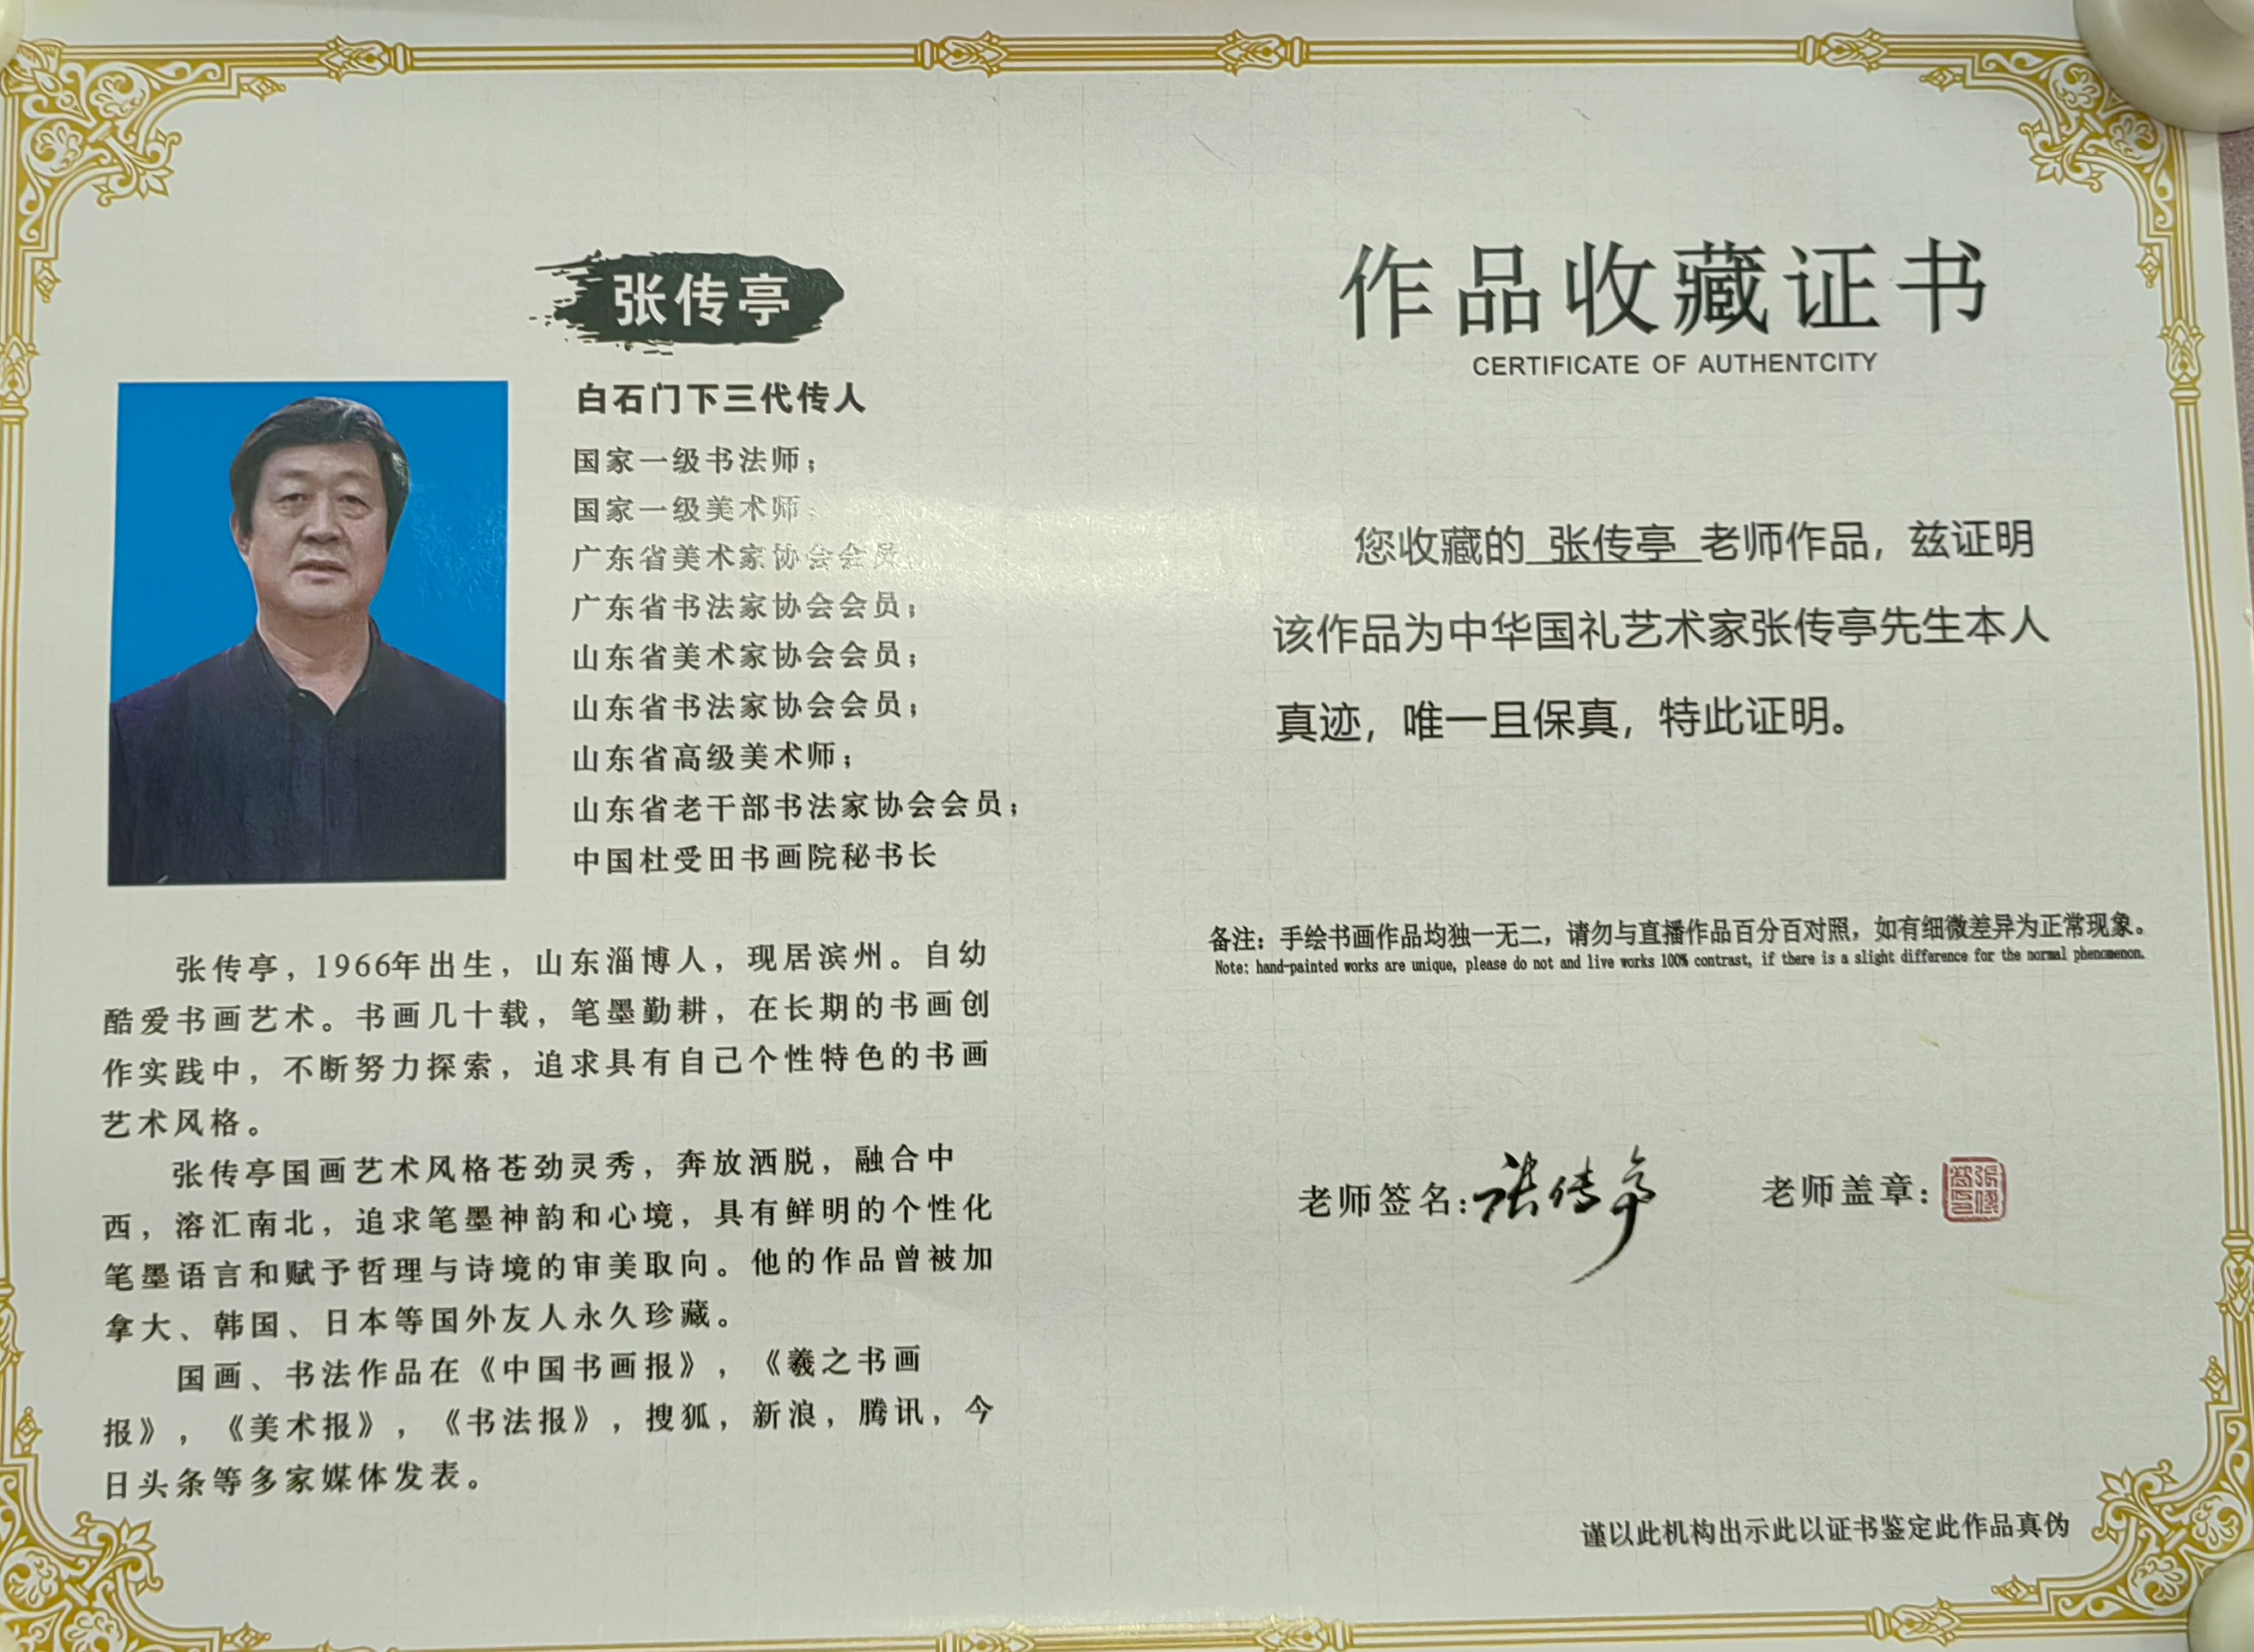 张传亭
白石门下三代传人
国家一级书法师；
国家一级美术师；
广东省美术家协会会员
广东省书法家协会会员；
山东省美术家协会会员；
山东省书法家协会会员；
山东省高级美术师；
山东省老干部书法家协会会员；
中国杜受田书画院秘书长
张传亭，1966年出生，山东淄博人，现居滨州。自幼
酷爱书画艺术。书画几十载，笔墨勤耕，在长期的书画创
作实践中，不断努力探索，追求具有自己个性特色的书画
艺术风格。
张传亭国画艺术风格苍劲灵秀，奔放洒脱，融合中
西，溶汇南北，追求笔墨神韵和心境，具有鲜明的个性化
笔墨语言和赋予哲理与诗境的审美取向。他的作品曾被加
拿大、韩国、日本等国外友人永久珍藏。
国画、书法作品在《中国书画报》，《羲之书画
报》，《美术报》，《书法报》，搜狐，新浪，腾讯，今
日头条等多家媒体发表。
作品收藏证书
CERTIFICATE OF AUTHENTCITY
您收藏的 张传亭 老师作品，兹证明
该作品为中华国礼艺术家张传亭先生本人
真迹，唯一且保真，特此证明。
备注：手绘书画作品均独一无二，请勿与直播作品百分百对照，如有细微差异为正常现象。
Note: hand-painted works are unique, please do not and live works 100% contrast, if there is a slight difference for the normal phenomenon.
老师签名：张传亭 老师盖章：
谨以此机构出示此以证书鉴定此作品真伪